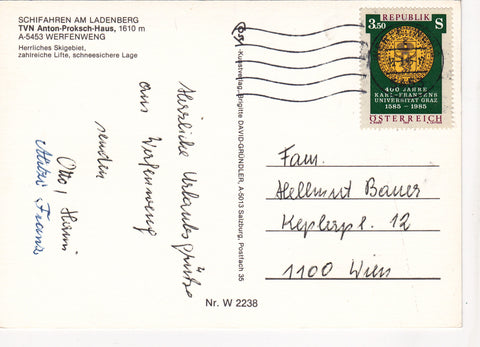 SCHIFAHREN AM LADENBERG
TVN Anton-Proksch-Haus, 1610 m
A-5453 WERFENWENG
Herrliches Skigebiet,
zahlreiche Lifte, schneesichere Lage
Herzliche Urlaubsgrüße
aus Werfenweng
senden
Otto, Hermi
Franz
-Kunstverlag, Brigitte DAVID-GRÜNDLER, A-5013 Salzburg, Postfach 35
REPUBLIK
3.50 S
400 JAHRE
KARL-FRANZENS
UNIVERSITÄT GRAZ
1585 – 1985
ÖSTERREICH
Fam.
Hellmut Bauer
Keplerpl. 12
1100 Wien
Nr. W 2238